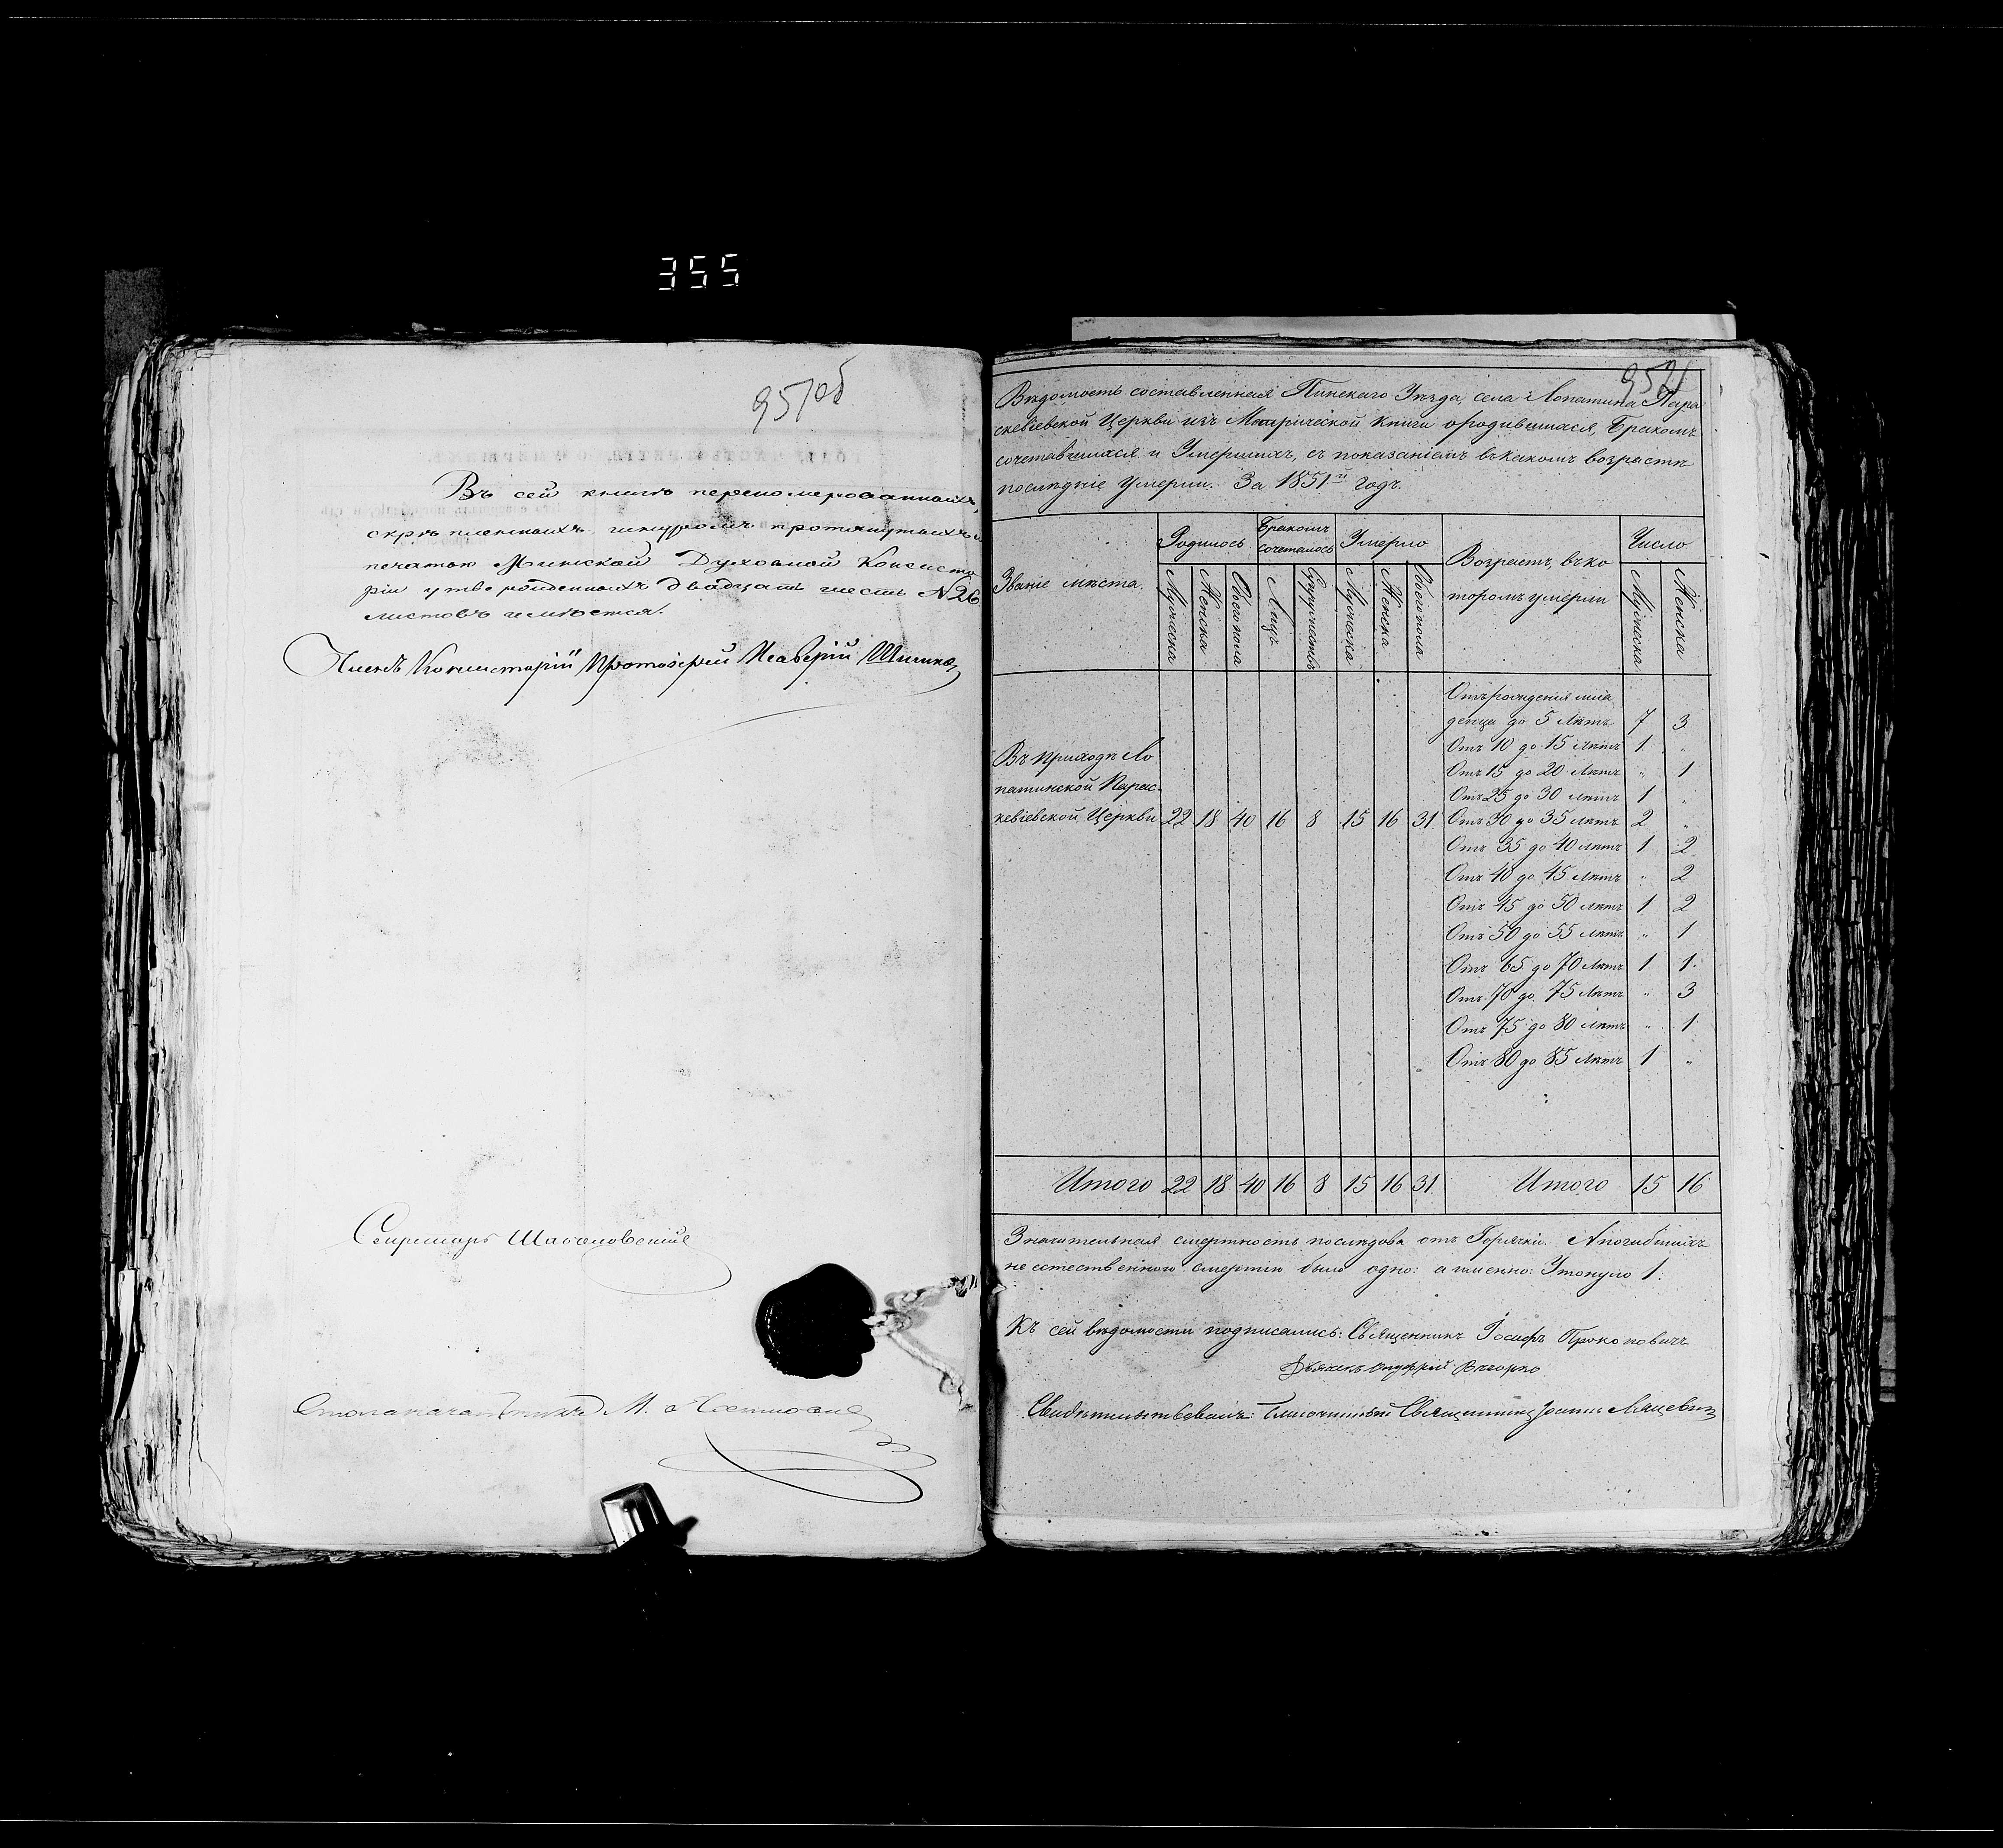 355
957об
Въ сей книгѣ переномерованныхъ,
скрѣпленныхъ шнуромъ протянутыхъ и
печатью Минской Духовной Консисто
ріи утвержденныхъ двадцать шесть №26
листовъ имѣется.
Членъ Консисторіи Протоіерей
Секретарь
Столоначальникъ М.
958
Вѣдомость составленная Пинскаго Уѣзда, села Лопатина Пара
скевіевской Церкви изъ Метрической книги ородившихся, Бракомъ
сочетавшихся и Умершихъ, съ показаніемъ въкакомъ возрастѣ
послѣдніе умерли. За 1851й годъ.
Званіе мѣста. Родилось Бракомъ сочеталось Умерло Возрастъ, въко Число
торомъ умерли
Мужеска Женска Обоего пола Лицъ Супружествъ Мужеска Женска Обоего пола Мужеска Женска
Отъ рожденія мла
денца до 5 Лѣтъ 7 3
Отъ 10 до 15 лѣтъ 1 "
Отъ 15 до 20 Лѣтъ " 1
Отъ 25 до 30 лѣтъ 1 "
Въ приходѣ Ло
патинской Парас-
кевіевской Церкви 22 18 40 16 8 15 16 31 Отъ 30 до 35 лѣтъ 2 "
Отъ 35 до 40 лѣтъ 1 2
Отъ 40 до 45 лѣтъ " 2
Отъ 45 до 50 лѣтъ 1 2
Отъ 50 до 55 лѣтъ " 1
Отъ 65 до 70 Лѣтъ 1 1
Отъ 70 до 75 Лѣтъ " 3
Отъ 75 до 80 лѣтъ " 1
Отъ 80 до 85 Лѣтъ 1 "
Итого 22 18 40 16 8 15 16 31 Итого 15 16
Значительная смертность послѣдова отъ Горячки. Апогибшихъ
не естественною смертію было одно: а именно: Утонуло 1.
Къ сей вѣдомости подписались: Священникъ Іосифъ Прокоповичъ
Дьячекъ
Свидѣтельствовалъ: Благочинный Священникъ Іоаннъ